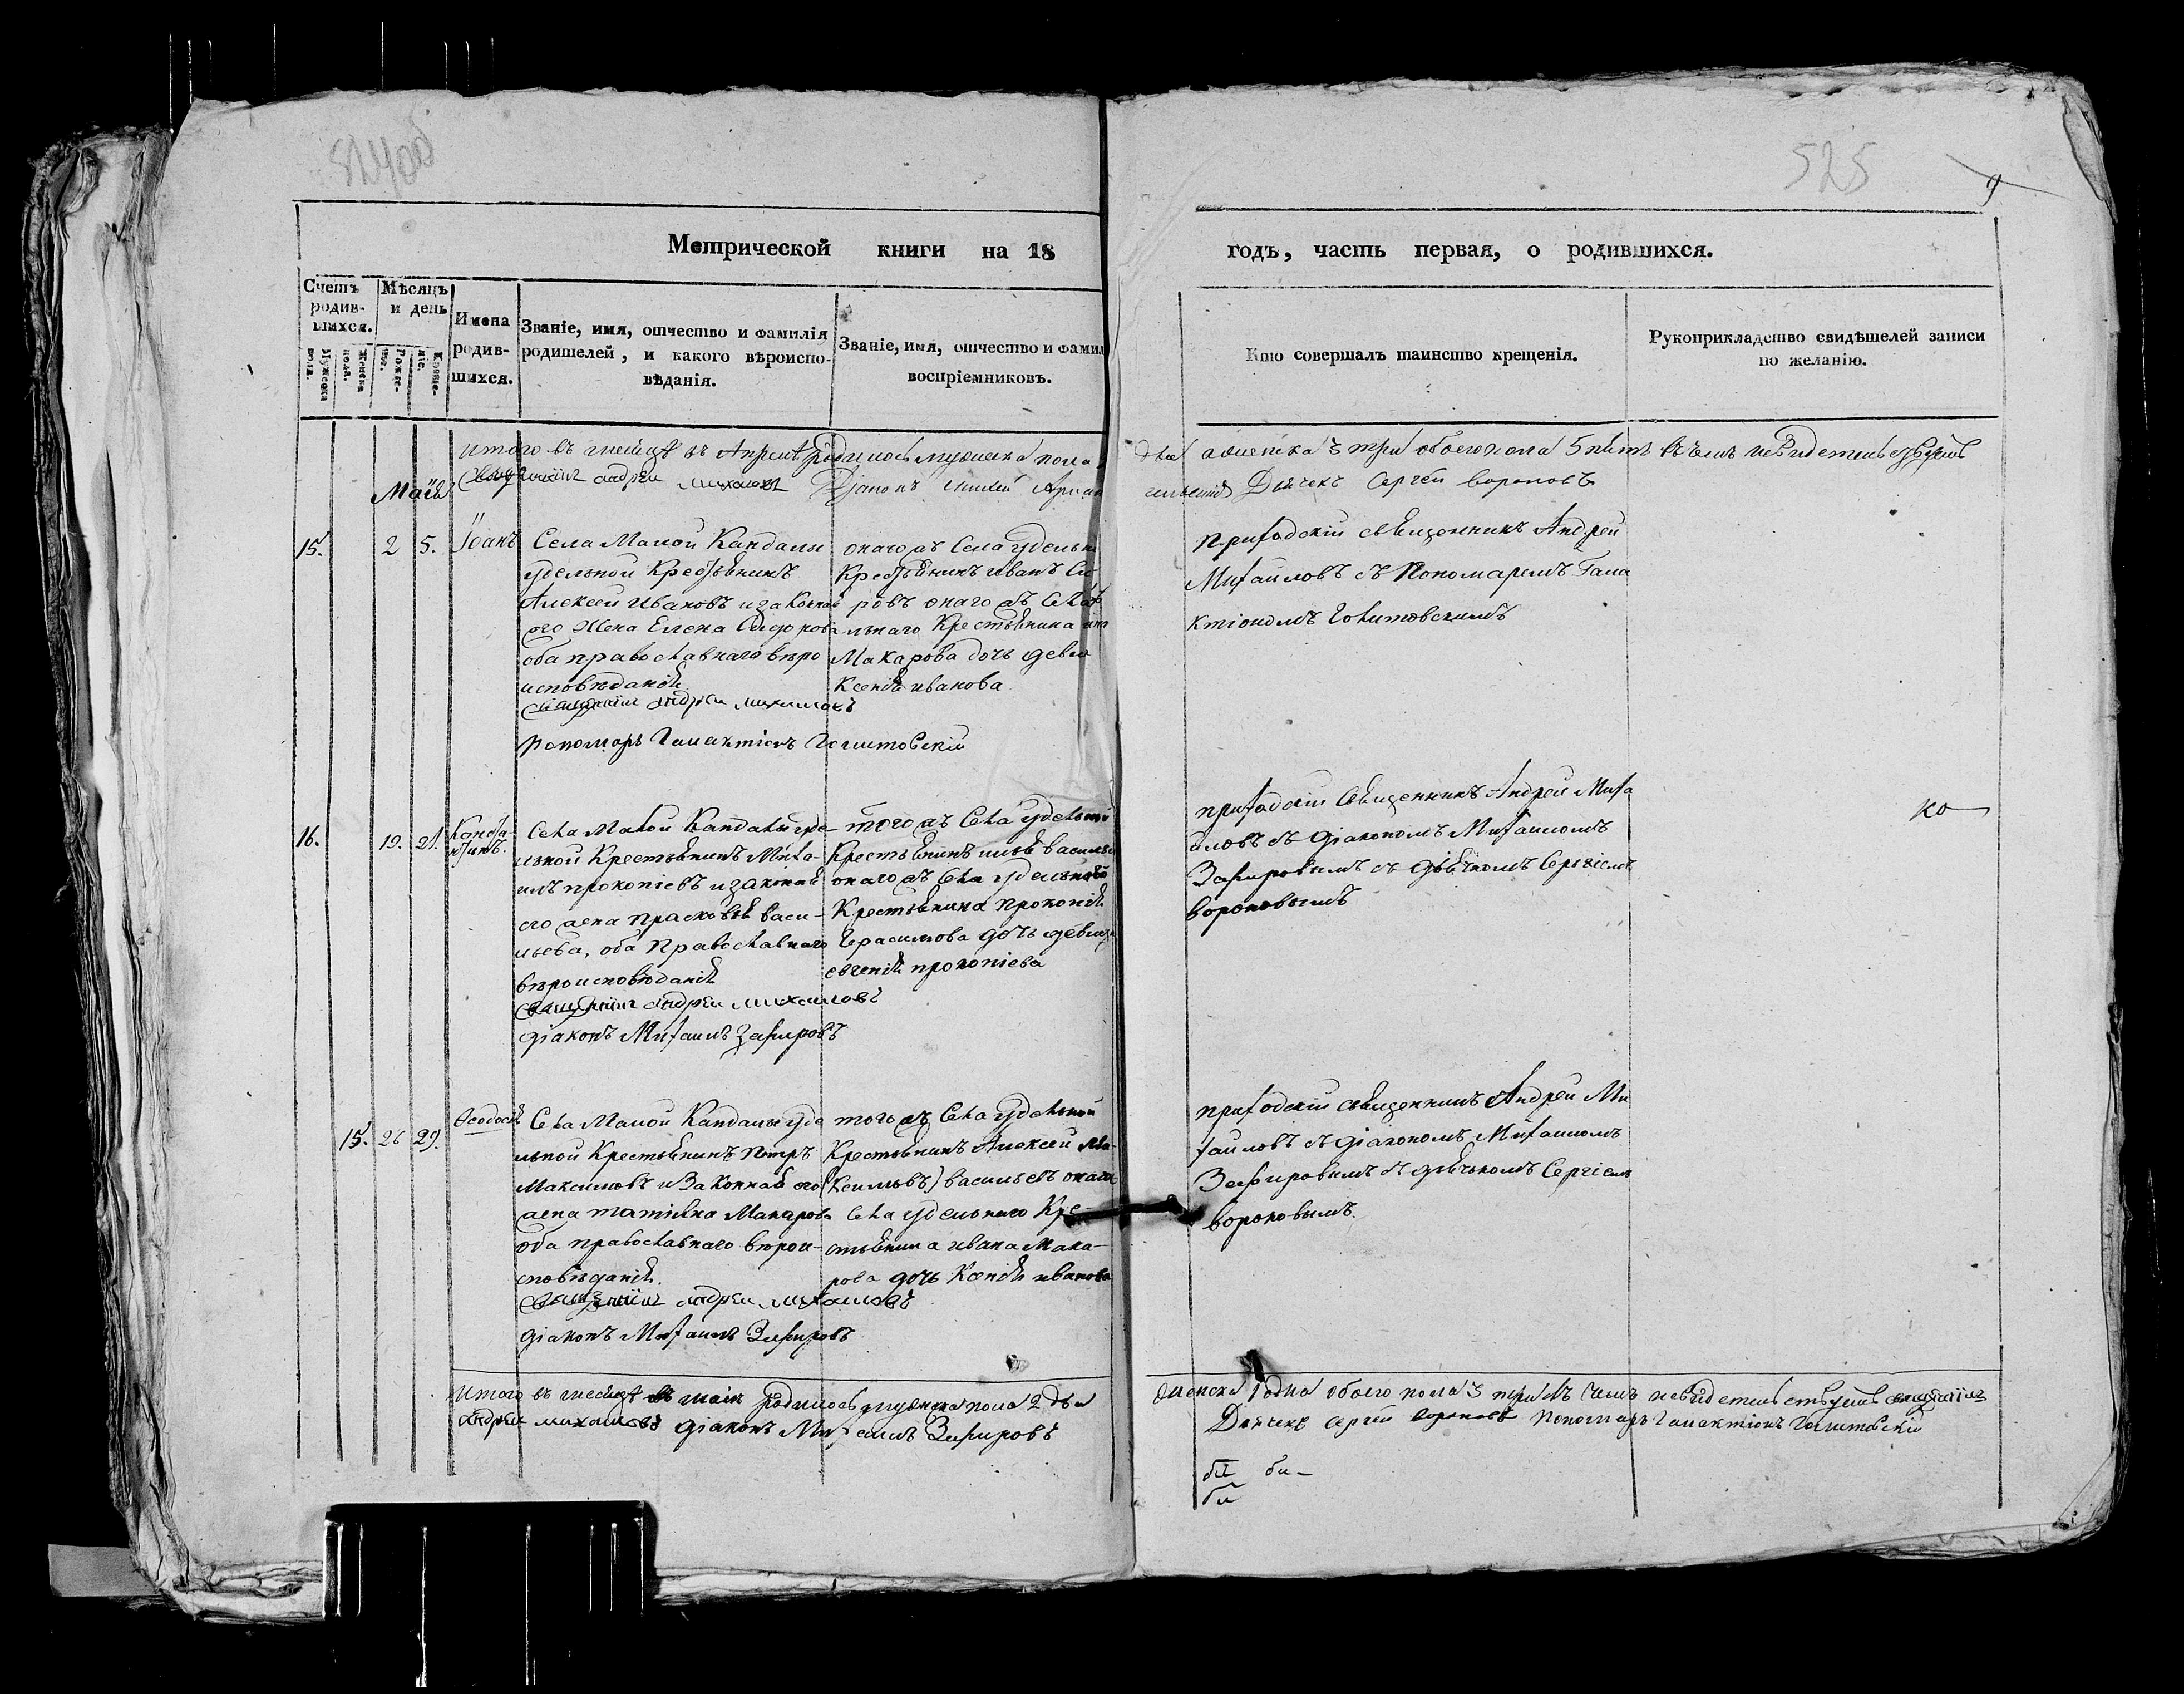 524об
525
9
Метрической книги на 18
годъ, часть первая, о родившихся.
Счетъ родив-шихся.
Мѣсяцъ и день
Мужеска пола.
Женска пола.
Рожде-ніе.
Креще-ніе.
Имена родив-шихся.
Званіе, имя, отчество и фамилія родителей, и какого вѣроиспо-вѣданія.
Званіе, имя, отчество и фамил
воспріемниковъ.
Кто совершалъ таинство крещенія.
Рукоприкладство свидѣтелей записи по желанію.
Итого въ месяцѣ въ Апрелѣ родилось мужеска пола
два а женска 3 три обоего пола 5 пять въ чемъ и свидетельствуемъ
Священникъ Андрей Михаиловъ Діаконъ
Дьячекъ Сергей Вороновъ
Маія
15. 2 5. Іоанъ
Села Малой Кандалы
удельной Крестьянинъ
Алексей Ивановъ и законная
его Жена Елена Сидорова
оба православнаго веро
исповѣданія
Священникъ Андрей Михаиловъ
Пономарь Галактіонъ Голитовскій
онаго жъ Села удельн
Крестьянинъ Иванъ Си-
ровъ онаго жъ Села
льнаго Крестьянина
Макарова дочь девка
Ксенія Иванова
Приходскій священникъ Андрей
Михаиловъ съ Пономаремъ Гала
ктіономъ Голитовскимъ
16. 19. 21. Конста-нтинъ.
Села Малой Кандалы уде-
льной Крестьянинъ Миха-
илъ Прокопіевъ и законная
его жена Прасковья Васи-
льева, оба Православнаго
вероисповѣданія
Священникъ Андрей Михаиловъ
Діаконъ Михаилъ Зефировъ
того жъ Села удельной
Крестьянинъ Илья Василье
онаго жъ Села удельнаго
Крестьянина Прокопія
Герасимова дочь девица
Евгенія Прокопіева
Приходскій Священникъ Андрей Миха
иловъ съ Діакономъ Михаиломъ
Зефировымъ съ дьячкомъ Сергіемъ
Вороновымъ
ко
15. 26 29. Ѳеодосія
Села Малой Кандалы уде
льной Крестьянинъ Петръ
Максимовъ и Законная его
жена Татіяна Макарова
оба православнаго верои-
сповѣданія.
Священникъ Андрей Михаиловъ
Діаконъ Михаилъ Зефировъ
того жъ Села удельной
Крестьянинъ Алексей Ма-
(ксимовъ) Васильевъ онаго
Села удельнаго Кре-
стьянина Ивана Мака-
рова дочь Ксенія Иванова
Приходскій священникъ Андрей Ми
хаиловъ съ Діакономъ Михаиломъ
Зефировымъ съ дьячькомъ Сергіемъ
Вороновымъ.
Итого въ месяцѣ въ маіи родилось мужеска пола 2 два
женска 1 одна обоего пола 3 три въ чемъ и свидетельствуемъ священникъ
Андрей Михаиловъ Діаконъ Михаилъ Зефировъ
Дьячекъ Сергей Вороновъ Пономарь Галактіонъ Голитовскій